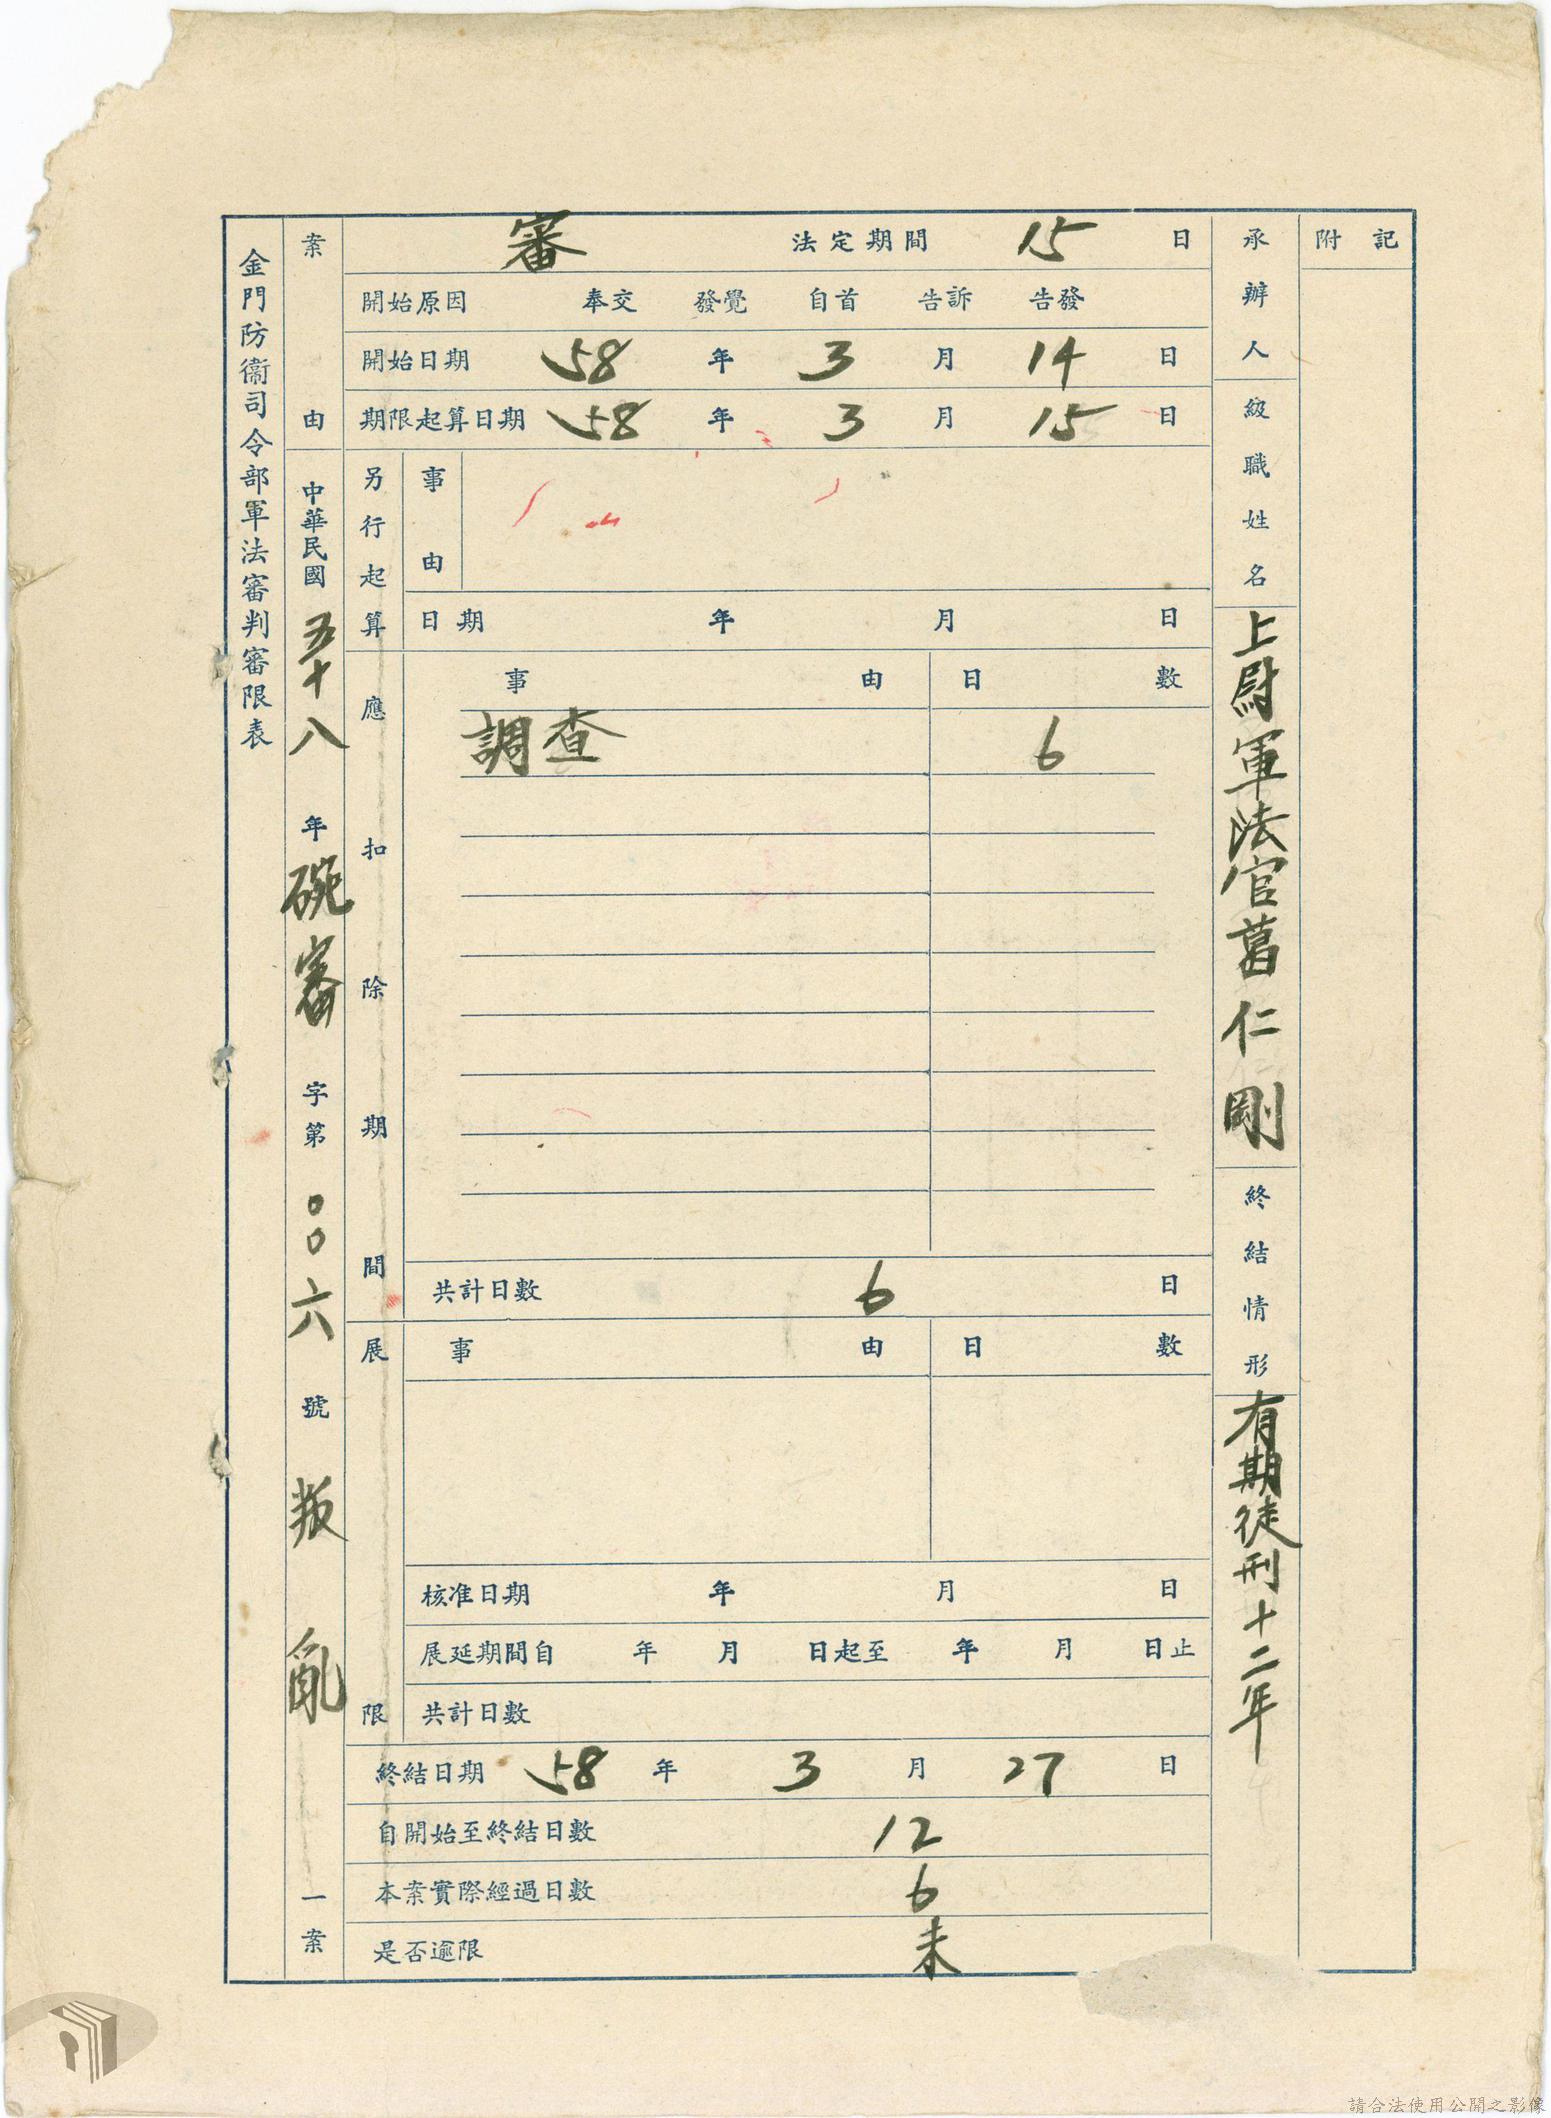 金門防衛司令部軍法審判審限表
案由 中華民國五十八年碗審字第〇〇六號叛亂一案
審 法定期間 15 日
開始原因 奉交 發覺 自首 告訴 告發
開始日期 58 年 3 月 14 日
期限起算日期 58 年 3 月 15 日
另行起算
事由
日期 年 月 日
應扣除期間
事由 日數
調查 6
共計日數 6 日
展限
事由 日數
核准日期 年 月 日
展延期間自 年 月 日起至 年 月 日止
共計日數
終結日期 58 年 3 月 27 日
自開始至終結日數 12
本案實際經過日數 6
是否逾限 未
承辦人級職姓名 上尉軍法官葛仁剛 終結情形 有期徒刑十二年
附記
請合法使用公開之影像